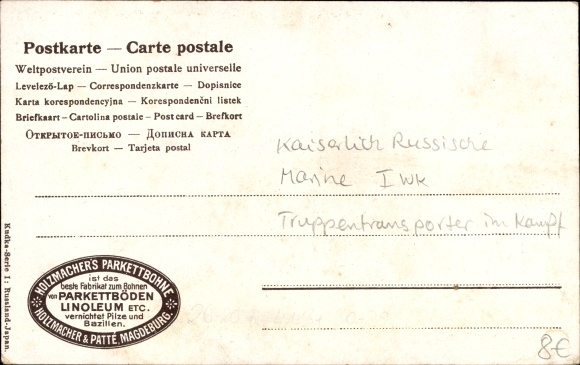 Postkarte — Carte postale
Weltpostverein — Union postale universelle
Levelező-Lap — Correspondenzkarte — Dopisnice
Karta korespondencyjna — Korespondenční listek
Briefkaart — Cartolina postale — Post card — Brefkort
Открытое-письмо — Дописна карта
Brevkort — Tarjeta postal
Kaiserlich Russische
Marine I Wk
Truppentransporter im Kampf
Kudks-Serie I: Russland-Japan.
HOLZMACHERS PARKETTBOHNE
ist das
beste Fabrikat zum Bohnen
von PARKETTBÖDEN
LINOLEUM ETC.
vernichtet Pilze und
Bazillen.
HOLZMACHER & PATTÉ, MAGDEBURG.
8€